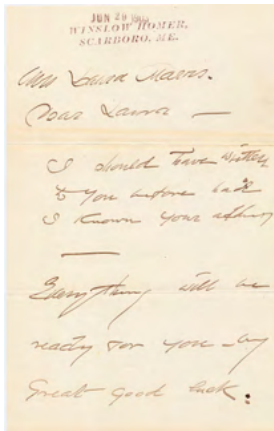 JUN 29
WINSLOW HOMER,
SCARBORO, ME.
Dear Laura —
I should have written
to you before had
I known your address
—
Everything will be
ready for you by
Great good luck